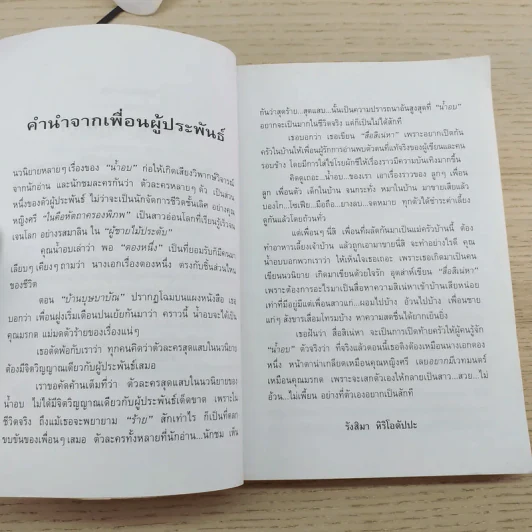 คำนำจากเพื่อนผู้ประพันธ์
นวนิยายหลายๆ เรื่องของ "น้ำอบ" ก่อให้เกิดเสียงวิพากษ์วิจารณ์
จากนักอ่าน และนักชมละครกันว่า ตัวละครหลายๆ ตัว เป็นส่วน
หนึ่งของตัวผู้ประพันธ์ ไม่ว่าจะเป็นนักจัดการชีวิตชั้นเลิศ อย่างคุณ
หญิงศรี "ในคือหัตถาครองพิภพ" เป็นสาวอ่อนโลกที่เรียนรู้เร็วจน
เจนโลก อย่างรสมาลิน ใน "ผู้ชายไม้ประดับ"
คุณน้ำอบเล่าว่า พอ "ตองหนึ่ง" เป็นที่ยอมรับก็มีคน
เลียบๆ เคียงๆ ถามว่า นางเอกเรื่องตองหนึ่ง ตรงกับชิ้นส่วนไหน
ของชีวิต
ตอน "บ้านบุษบาบัณ" ปรากฏโฉมบนแผงหนังสือ เธอ
บอกว่า เพื่อนฝูงเริ่มเดือนปนเย้ยกันมาว่า คราวนี้ น้ำอบจะได้เป็น
คุณมรกต แม่มดตัวร้ายของเรื่องแน่ๆ
เธอตัดพ้อกับเราว่า ทุกคนคิดว่าตัวละครสุดแสบในนวนิยาย
ต้องมีจิตวิญญาณเดียวกับผู้ประพันธ์เสมอ
เราขอคัดค้านเต็มที่ว่า ตัวละครสุดแสบในนวนิยายของ
น้ำอบ ไม่ได้มีจิตวิญญาณเดียวกับผู้ประพันธ์เด็ดขาด เพราะใน
ชีวิตจริง ถึงแม้เธอจะพยายาม "ร้าย" สักเท่าไร ก็เป็นที่ตลก
ขบขันของเพื่อนๆ เสมอ ตัวละครทั้งหลายที่นักอ่าน...นักชม เห็น
กันว่าสุดร้าย...สุดแสบ...นั้นเป็นความปรารถนาอันสูงสุดที่ "น้ำอบ"
อยากจะเป็นมากในชีวิตจริง แต่ก็เป็นไม่ได้สักที
เธอบอกว่า เธอเขียน "สื่อสิเน่หา" เพราะอยากเปิดก้น
ครัวในบ้านให้เพื่อนผู้รักการอ่านพบตัวตนที่แท้จริงของผู้เขียนและคน
รอบข้าง โดยมีการใส่ไข่โรยผักชีให้เรื่องราวมีความบันเทิงมากขึ้น
คิดดูเถอะ...น้ำอบ...ของเรา เอาเรื่องราวของ ลูกๆ เพื่อน
ลูก เพื่อนตัว เด็กในบ้าน จนกระทั่ง หมาในบ้าน มาขายเสียแล้ว
บองโก...โซเฟีย...มือถือ...ยางลบ...จดหมาย ทุกตัวได้ชำระค่าเลี้ยง
ดูกันแล้วโดยถ้วนทั่ว
แต่เพื่อนๆ นี่สิ เพื่อนที่ผลัดกันมาเป็นแม่ครัวบ้านนี้ ต้อง
ทำอาหารเลี้ยงเจ้าบ้าน แล้วถูกเอามาขายนี่สิ จะทำอย่างไรดี คุณ
น้ำอบบอกพวกเราว่า ให้เห็นใจเธอเถอะ เพราะเธอเกิดมาเป็นคน
เขียนนวนิยาย เกิดมาเขียนด้วยใจรัก อุตส่าห์เขียน "สื่อสิเน่หา"
เพราะต้องการอะไรมาเป็นสื่อหาความสิเน่หาเข้าบ้านเสียหน่อย
เท่าที่มีอยู่มีแต่เพื่อนสาวแก่...ผอมไปบ้าง อ้วนไปบ้าง เพื่อนชาย
แก่ๆ สังขารเสื่อมโทรมบ้าง หาความสดชื่นได้ยากเย็นยิ่ง
เธอฝันว่า สื่อสิเน่หา จะเป็นการเปิดท้ายครัวให้ผู้คนรู้จัก
"น้ำอบ" ตัวจริงว่า ที่จริงแล้วตอนนี้เธอคิดจ้องเหมือนนางเอกตอง
หนึ่ง หน้าตาน่าเกลียดเหมือนคุณหญิงศรี เลยอยากมีเวทมนตร์
เหมือนคุณมรกต เพราะจะเสกตัวเองให้กลายเป็นสาว...สวย...ไม่
อ้วน...ไม่เพี้ยน อย่างที่ตัวเองอยากเป็นสักที
รังสิมา หิริโอตัปปะ